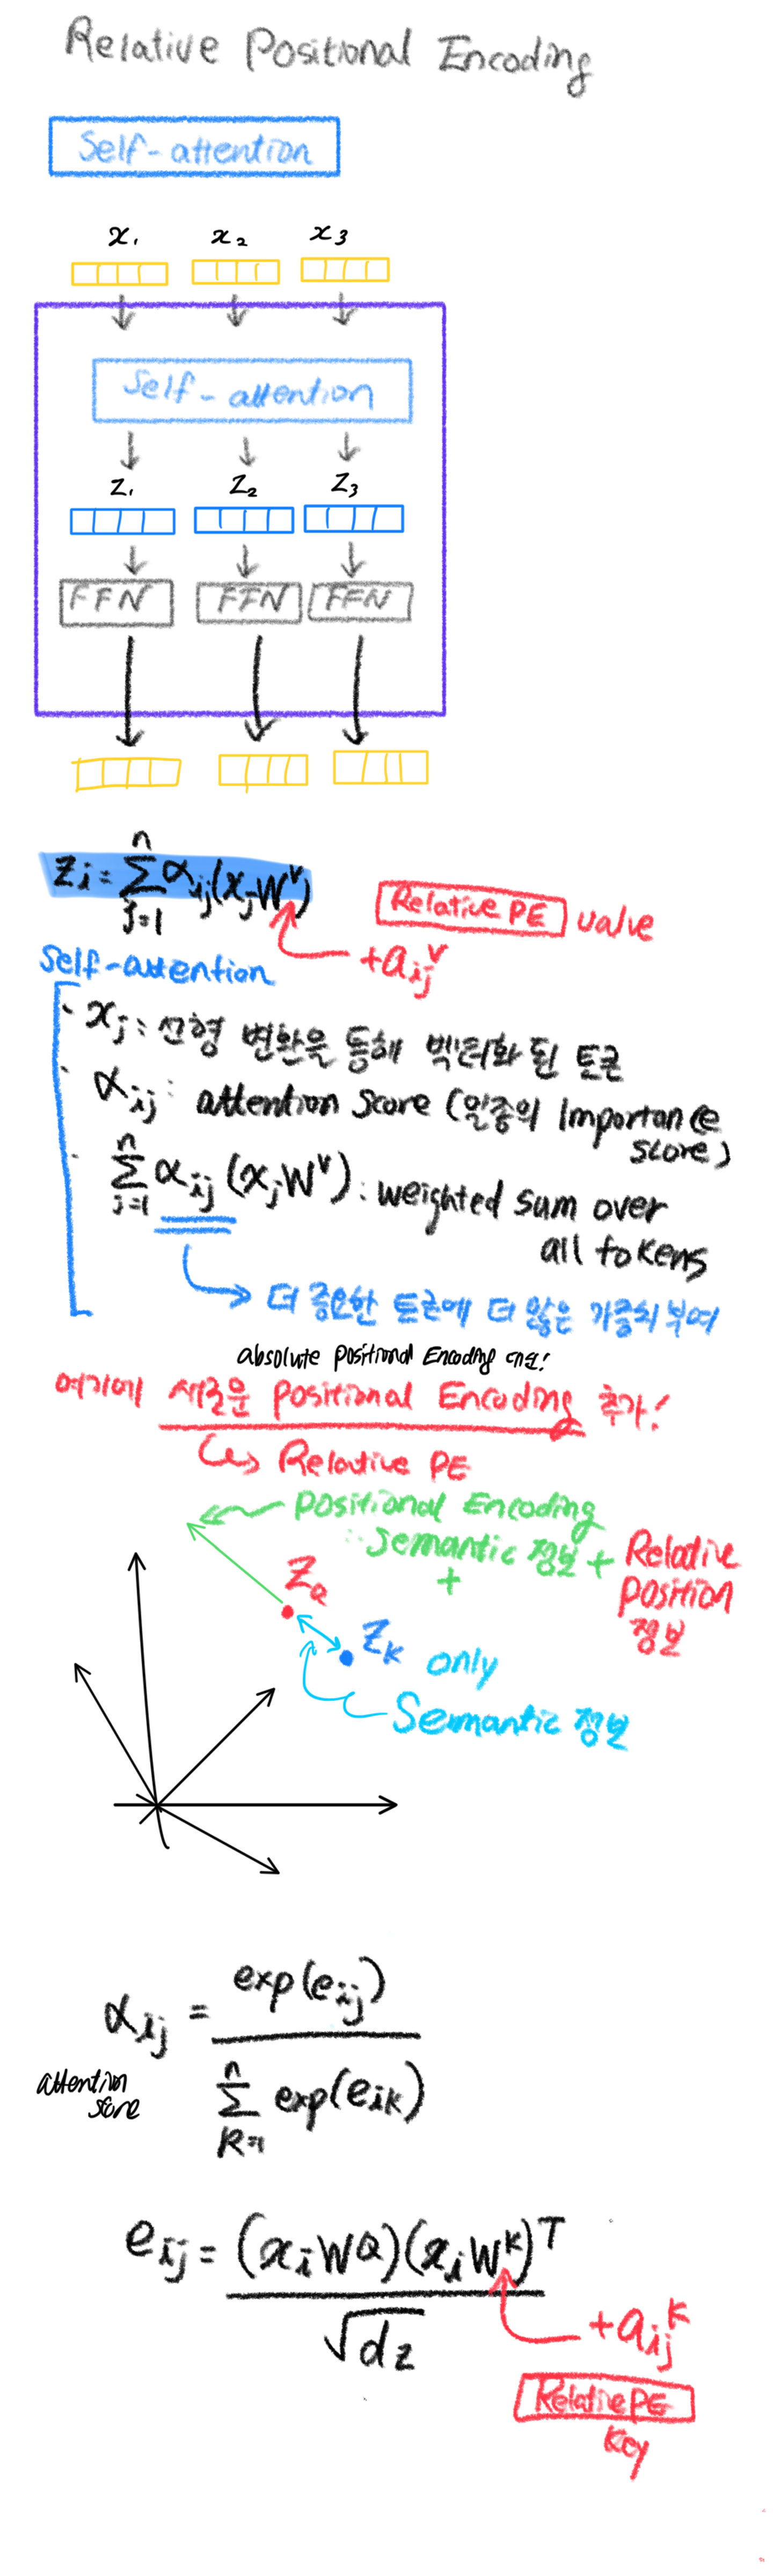 Relative Positional Encoding
Self-attention
x₁ x₂ x₃
Self-attention
z₁ z₂ z₃
FFN FFN FFN
zᵢ = Σⱼ₌₁ⁿ αᵢⱼ(xⱼWᵛ)
Relative PE value
+aᵢⱼᵛ
Self-attention
· xⱼ : 선형 변환을 통해 벡터화 된 토큰
· αᵢⱼ : attention score (일종의 importance
score)
· Σⱼ₌₁ⁿ αᵢⱼ (xⱼWᵛ) : weighted sum over
all tokens
더 중요한 토큰에 더 많은 가중치 부여
absolute positional Encoding 대신!
여기에 새로운 Positional Encoding 추가!
↳ Relative PE
Positional Encoding
: Semantic 정보 + Relative
+
position
정보
z_Q
z_K only
Semantic 정보
αᵢⱼ = exp(eᵢⱼ) / Σₖ₌₁ⁿ exp(eᵢₖ)
attention
score
eᵢⱼ = (xᵢW^Q)(xᵢW^K)^T / √d_z
+aᵢⱼᴷ
Relative PE
Key